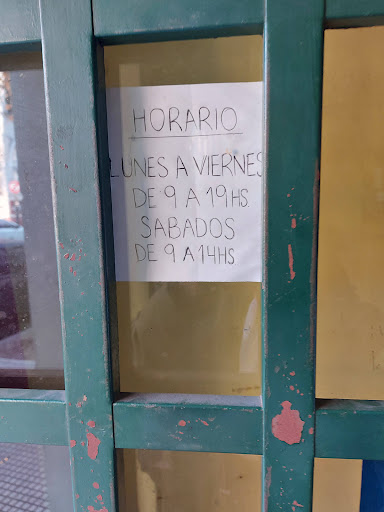 HORARIO
LUNES A VIERNES
DE 9 A 19HS
SABADOS
DE 9 A 14HS